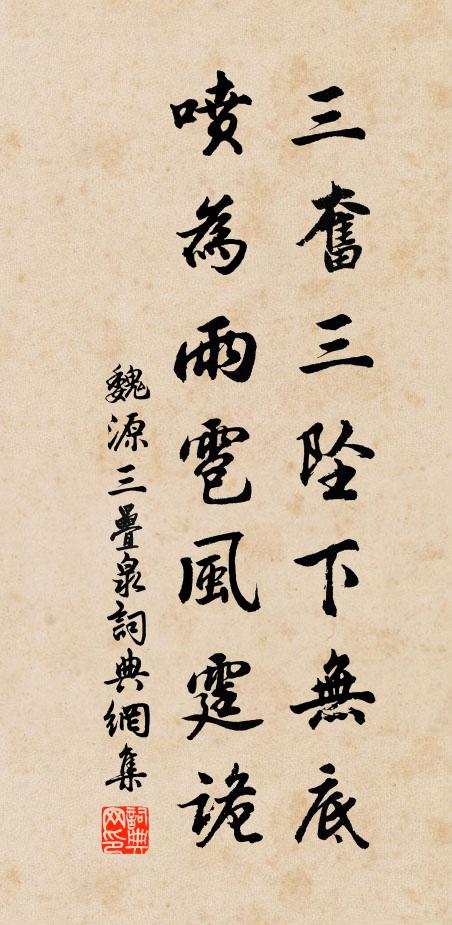 三奮三墜下無底
噴為雨雹風霆詭
魏源三疊泉詞典網集
詞典网印